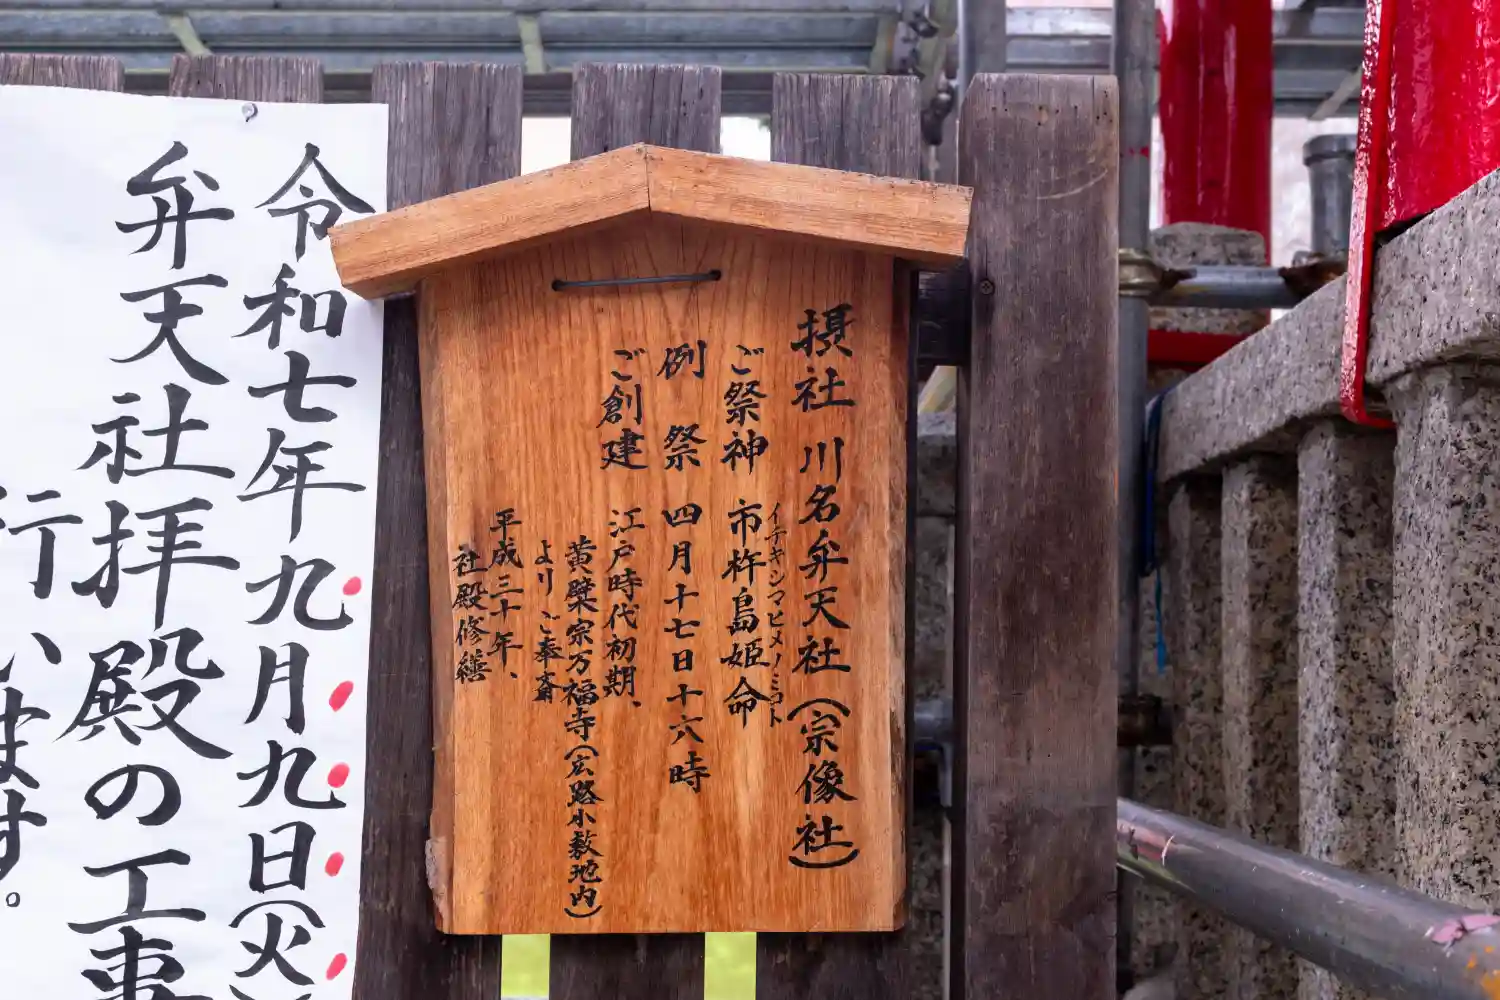 摂社 川名弁天社(宗像社)
ご祭神 市杵島姫命
イチキシマヒメノミコト
例 祭 四月十七日十六時
ご創建 江戸時代初期、
黄檗宗万福寺(広路小敷地内)
よりご奉斎
平成三十年、
社殿修繕
令和七年九月九日(火
弁天社拝殿の工事
行い
ます。